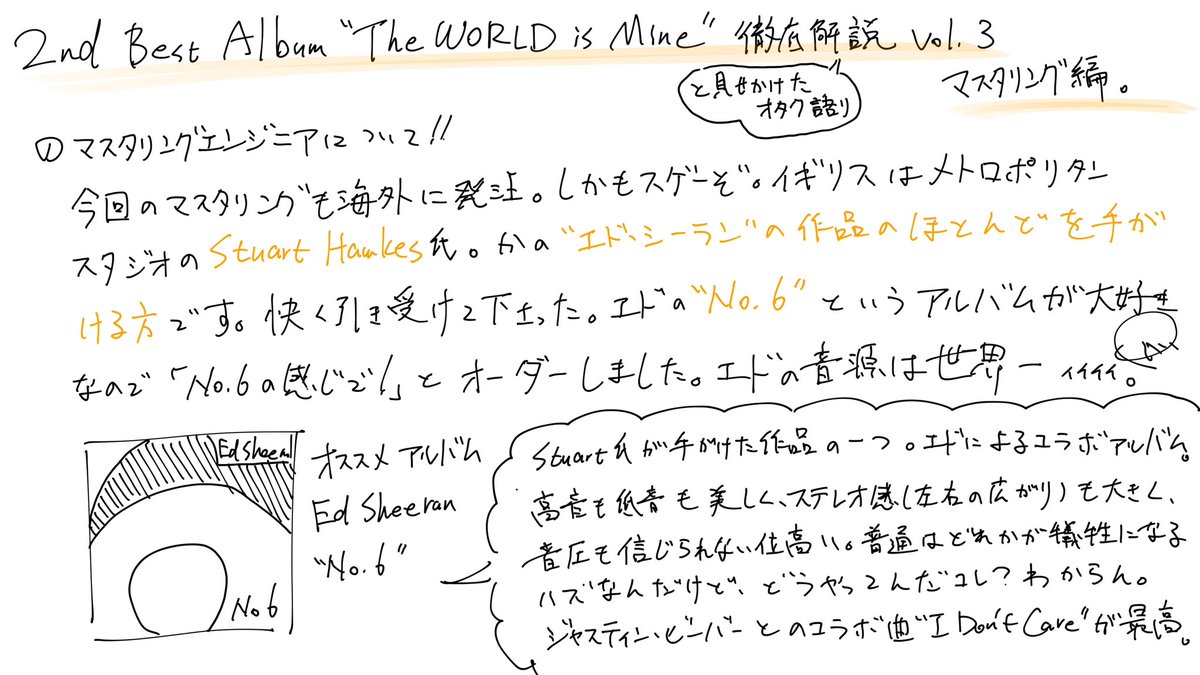 2nd Best Album "The WORLD is Mine" 徹底解説 vol.3
と見せかけた
オタク語り
マスタリング編。
① マスタリングエンジニアについて!!
今回のマスタリングも海外に発注。しかもスゲーぞ。イギリスはメトロポリタン
スタジオの Stuart Hawkes氏。かの"エド・シーラン"の作品のほとんどを手が
ける方です。快く引き受けて下さった。エドの"No.6"というアルバムが大好き
なので「No.6の感じで!」とオーダーしました。エドの音源は世界一ィィィィ。
Ed Sheeran
No.6
オススメアルバム
Ed Sheeran
"No.6"
Stuart氏が手がけた作品の一つ。エドによるコラボアルバム。
高音も低音も美しく、ステレオ感(左右の広がり)も大きく、
音圧も信じられない位高い。普通はどれかが犠牲になる
ハズなんだけど、どうやってんだコレ?わからん。
ジャスティン・ビーバーとのコラボ曲"I Don't Care"が最高。